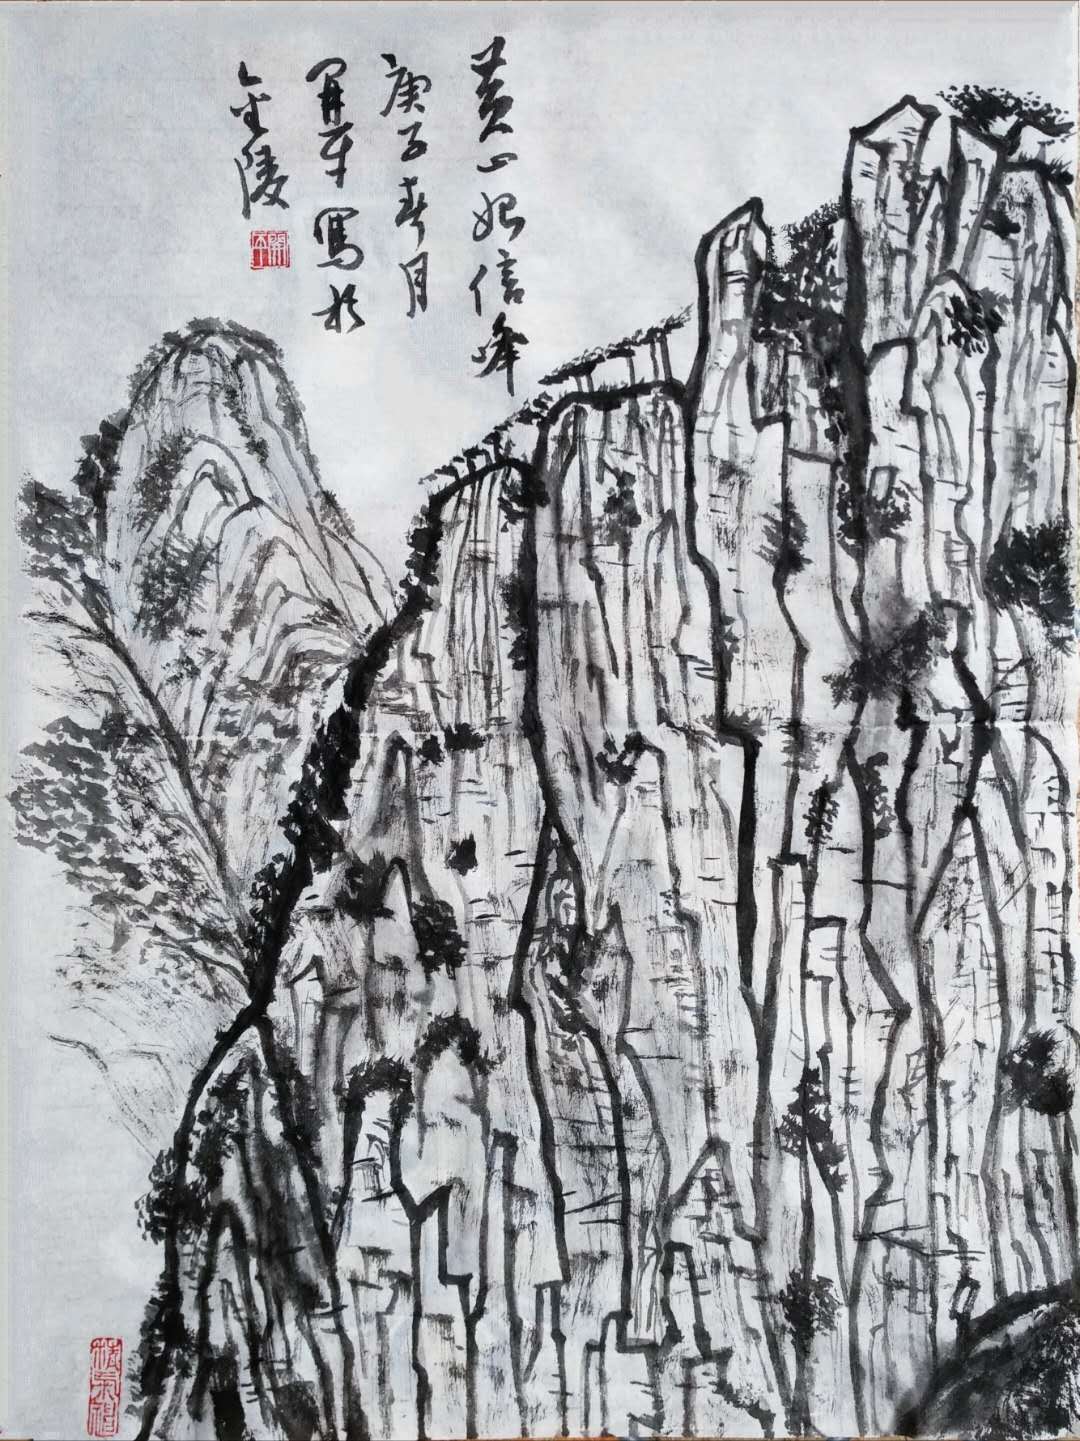 黄山始信峰
庚子春月
開平寫於
金陵